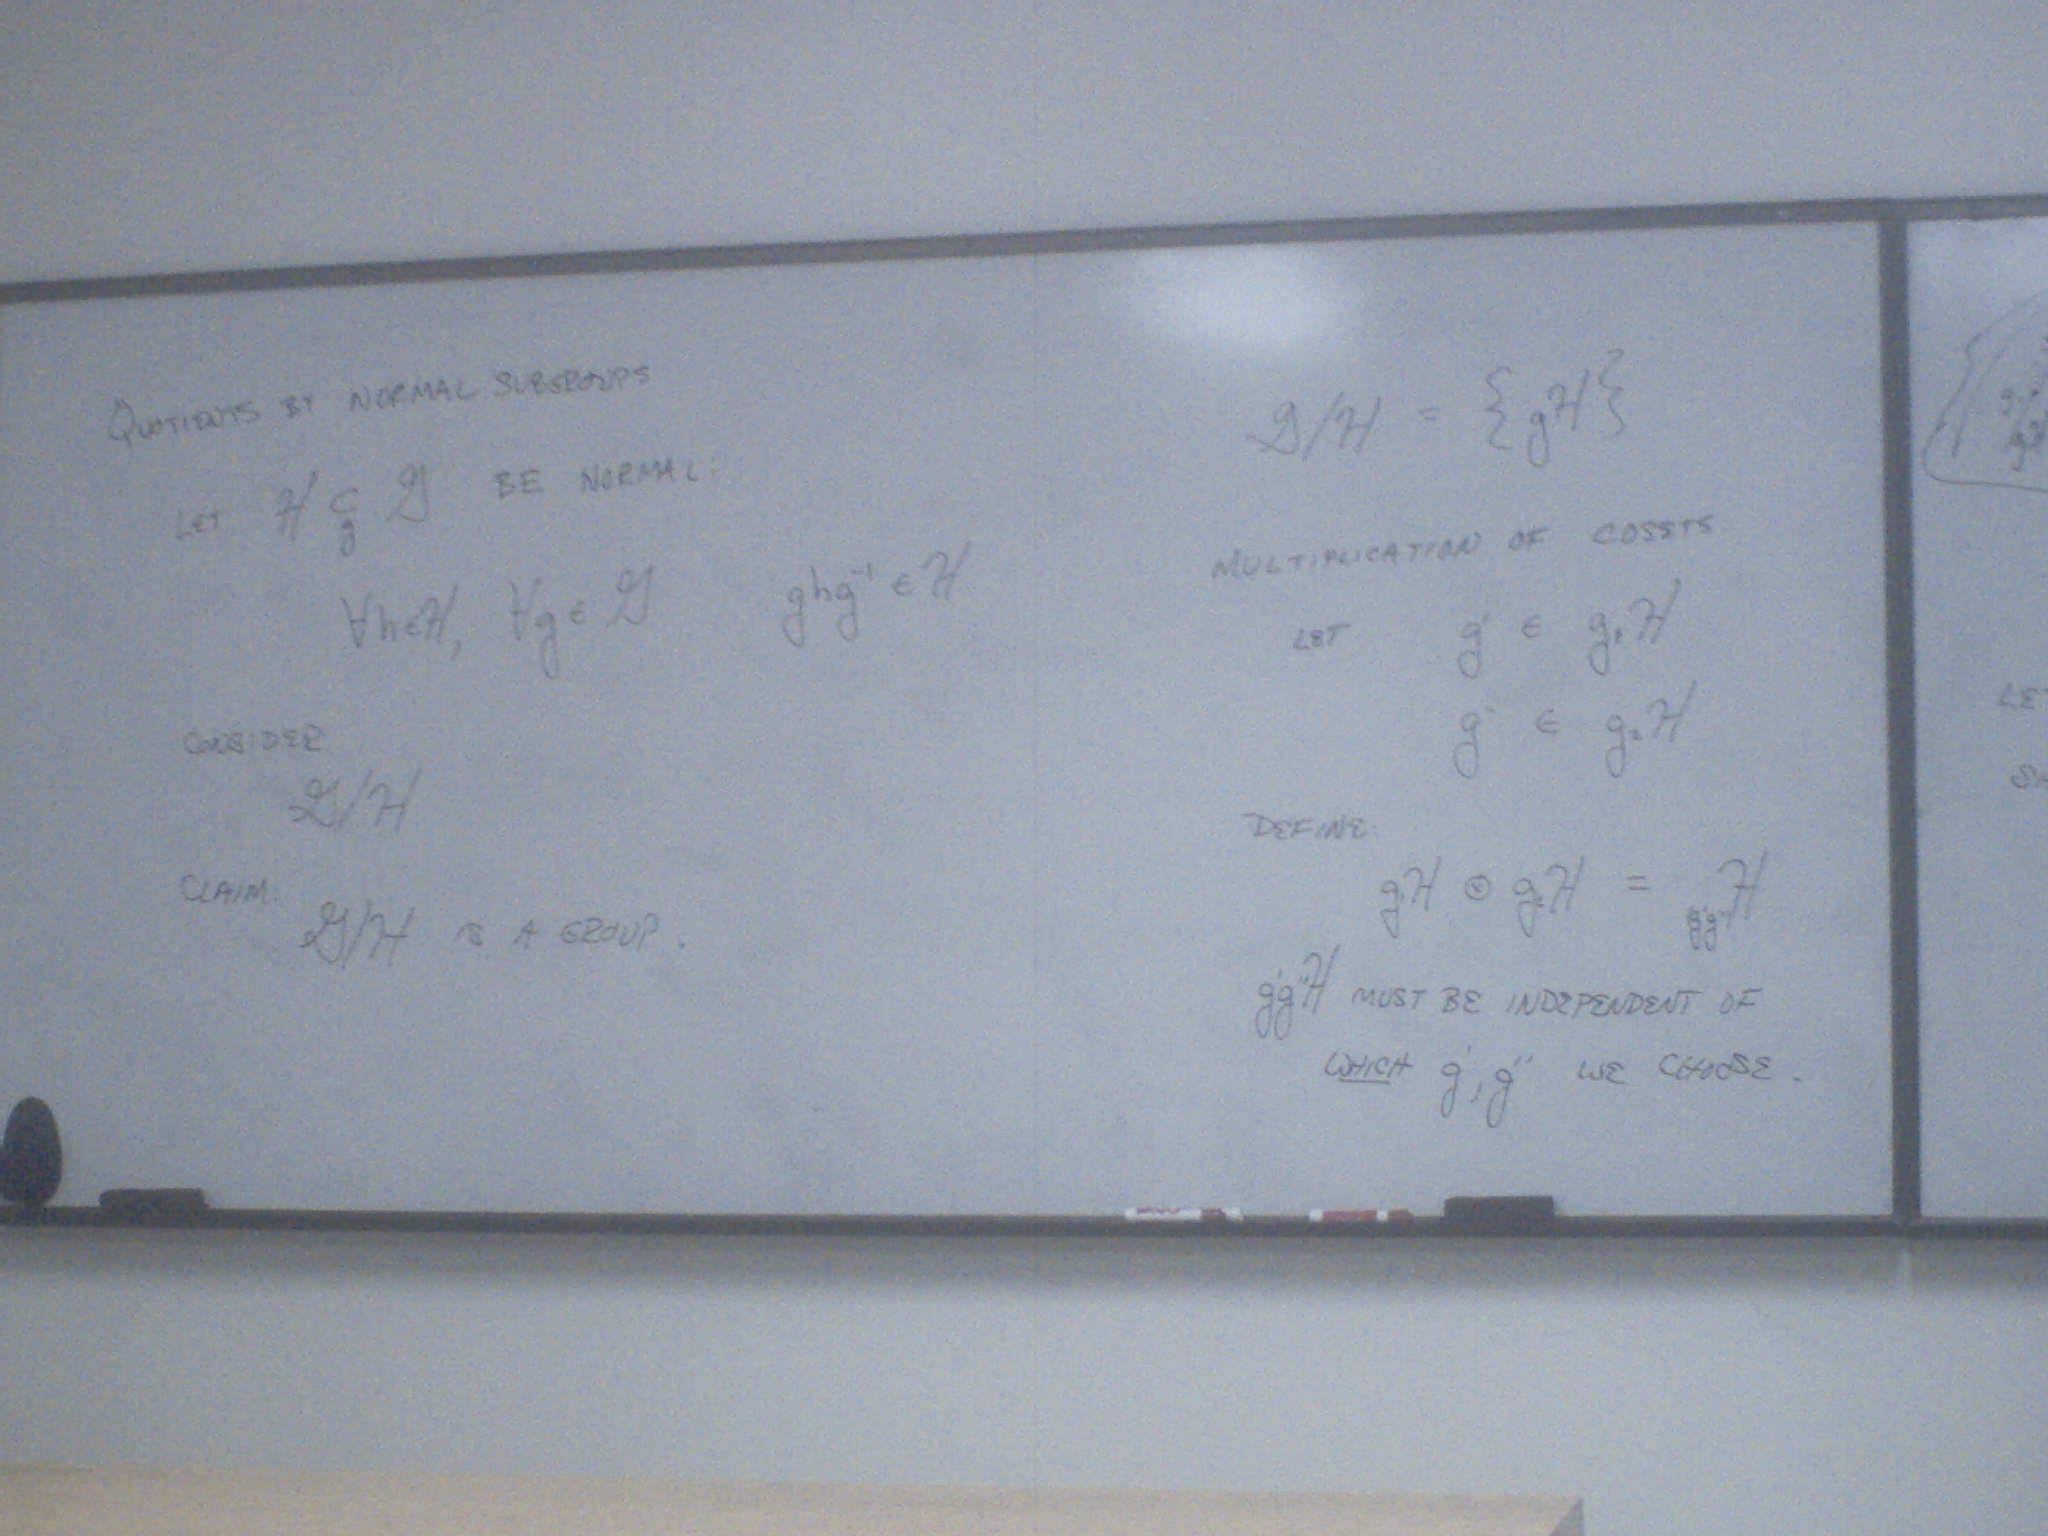 QUOTIENTS BY NORMAL SUBGROUPS
LET H ⊂g G BE NORMAL:
∀h∈H, ∀g∈G ghg⁻¹∈H
CONSIDER
G/H
CLAIM:
G/H IS A GROUP.
G/H = {gH}
MULTIPLICATION OF COSETS
LET g' ∈ g₁H
g'' ∈ g₂H
DEFINE:
g₁H ⊙ g₂H = g'g''H
g'g''H MUST BE INDEPENDENT OF
WHICH g', g'' WE CHOOSE.
LE
SA